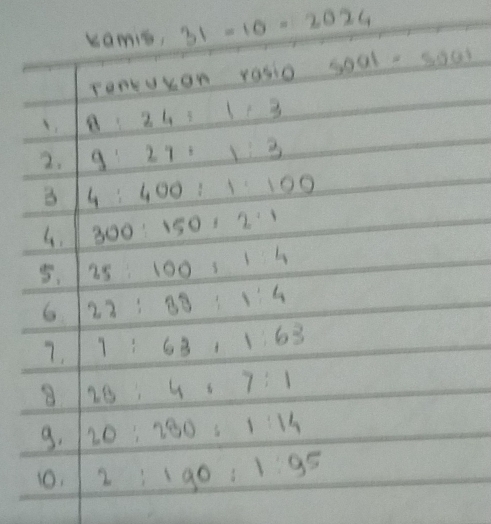 Kamis, 31 - 10 - 2024
Tentukan rasio soal - soal
1. 8 : 24 : 1 : 3
2. 9 : 27 : 1 : 3
3 4 : 400 : 1 : 100
4. 300 : 150 : 2 : 1
5. 25 : 100 : 1 : 4
6 22 : 88 : 1 : 4
7. 1 : 63 : 1 : 63
8 28 : 4 : 7 : 1
9. 20 : 280 : 1 : 14
10. 2 : 190 : 1 : 95